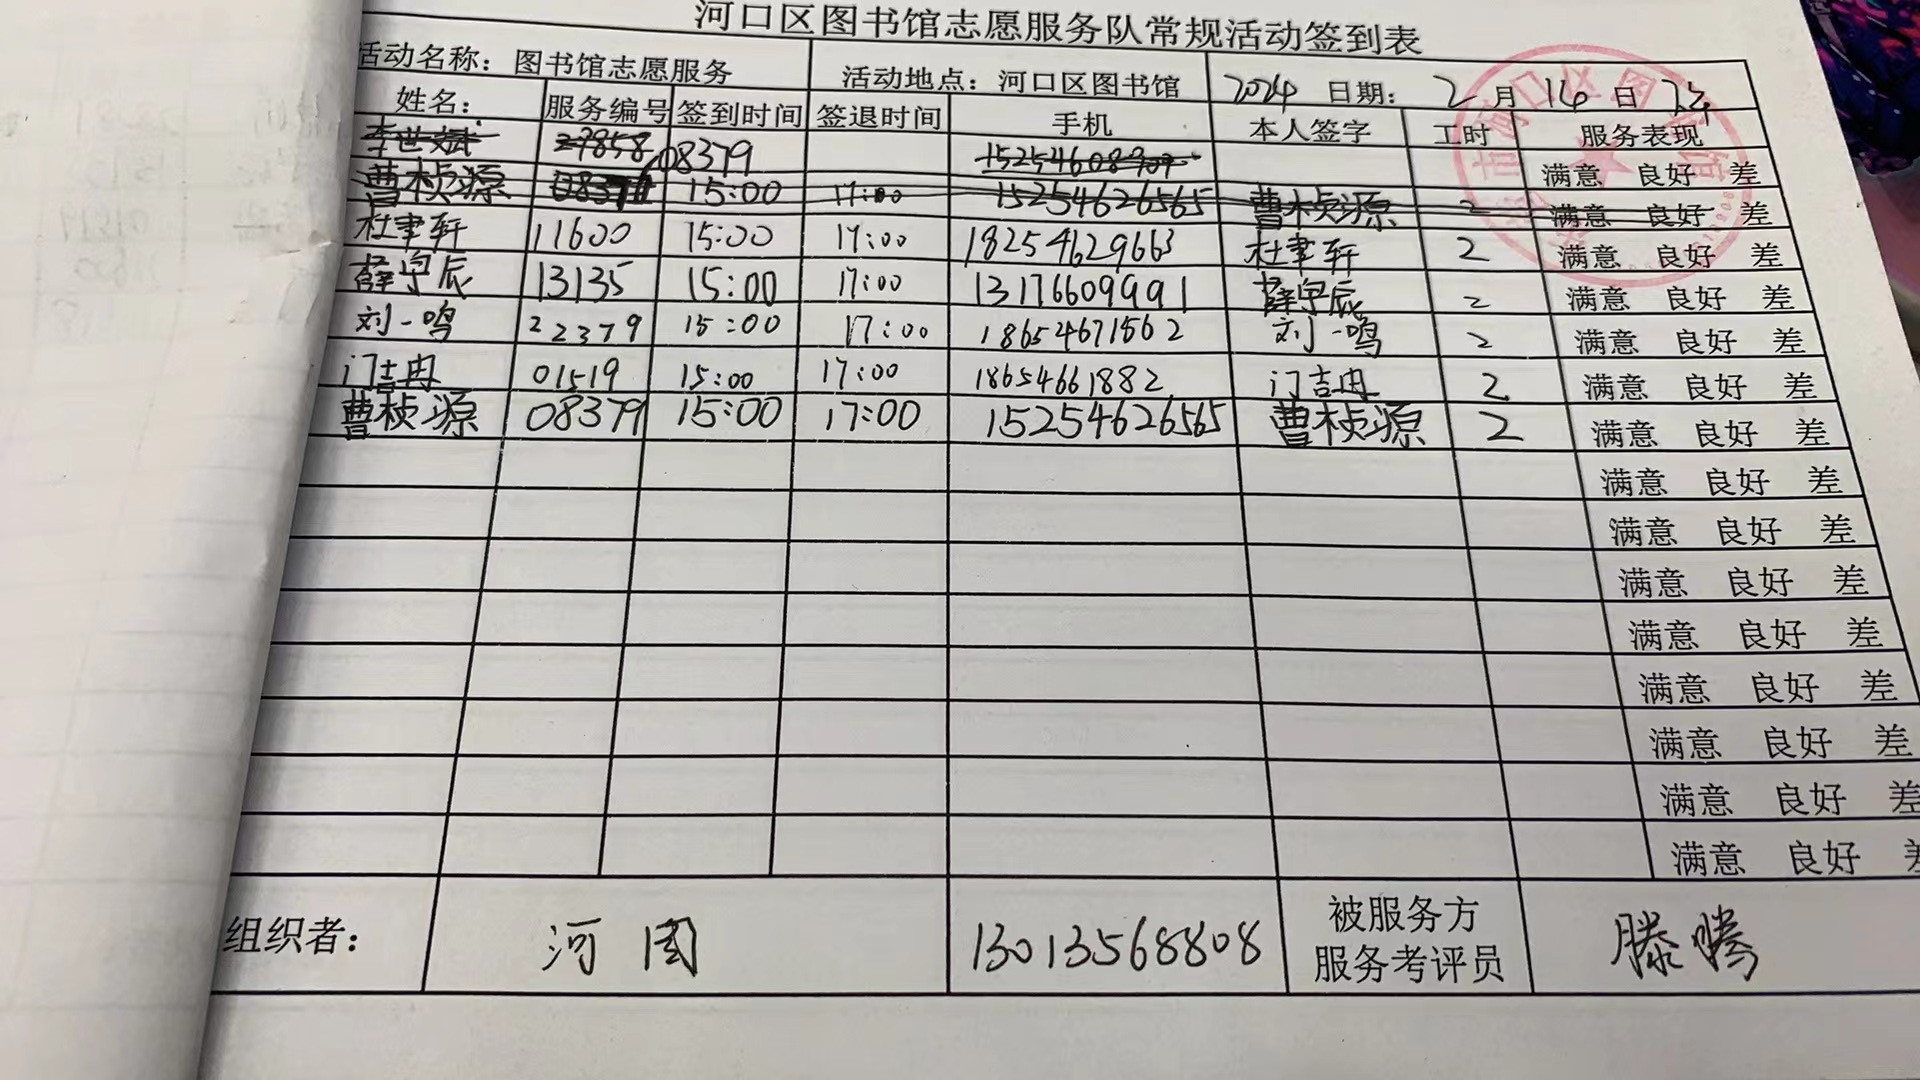 河口区图书馆志愿服务队常规活动签到表
活动名称：图书馆志愿服务 活动地点：河口区图书馆 2024 日期： 2 月 16 日
姓名： 服务编号 签到时间 签退时间 手机 本人签字 工时 服务表现
李世斌 29858 08379 满意 良好 差
曹桢源 15:00 17:00 15254626565 曹桢源 2 满意 良好 差
杜聿轩 11600 15:00 17:00 18254629663 杜聿轩 2 满意 良好 差
薛宇辰 13135 15:00 17:00 13176609991 薛宇辰 2 满意 良好 差
刘一鸣 22379 15:00 17:00 18654671562 刘一鸣 2 满意 良好 差
门吉冉 01519 15:00 17:00 18654661882 门吉冉 2 满意 良好 差
曹桢源 08379 15:00 17:00 15254626565 曹桢源 2 满意 良好 差
满意 良好 差
满意 良好 差
满意 良好 差
满意 良好 差
满意 良好 差
满意 良好 差
满意 良好 差
满意 良好 差
组织者： 河图 13013568808 被服务方 滕腾
服务考评员